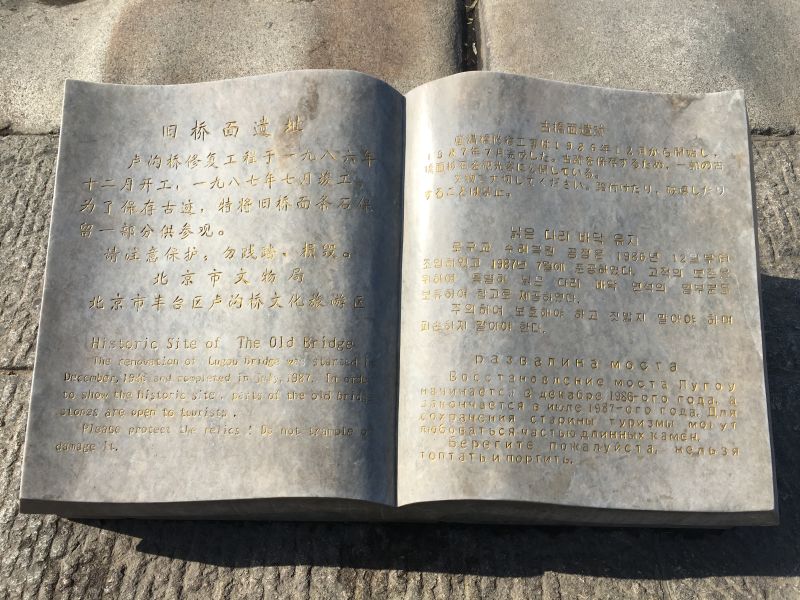 旧桥面遗址
卢沟桥修复工程于一九八六年
十二月开工，一九八七年七月竣工。
为了保存古迹，特将旧桥面条石保
留一部分供参观。
请注意保护，勿践踏、损毁。
北京市文物局
北京市丰台区卢沟桥文化旅游区
Historic Site of The Old Bridge
The renovation of Lugou bridge was started in
December, 1986 and completed in july, 1987. In order
to show the historic site, parts of the old bridge
stones are open to tourists.
Please protect the relics! Do not trample or
damage it.
古橋面遺跡
蘆溝橋修復工事は1986年12月から開始し、
1987年7月完成した。古跡を保存するため、一部の古
橋面板石を
することは禁止。
낡은 다리 바닥 유지
로구교 수리복원 공정은 1986년 12월부터
조업하였고 1987년 7월에 준공하였다. 고적의 보존을
위하여 특별히 낡은 다리 바닥 면석의 일부분을
보류하여 참고로 제공하였다.
주의하여 보호해야 하고 짓밟지 말아야 하며
파손하지 말아야 한다.
Развалина моста
Восстановление моста Лугоу
начинается в декабре 1986-ого года, а
закончается в июле 1987-ого года. Для
сохранения старины туризмы могут
любоваться частью длинных камен.
Берегите пожалуйста, нельзя
топтать и портить.